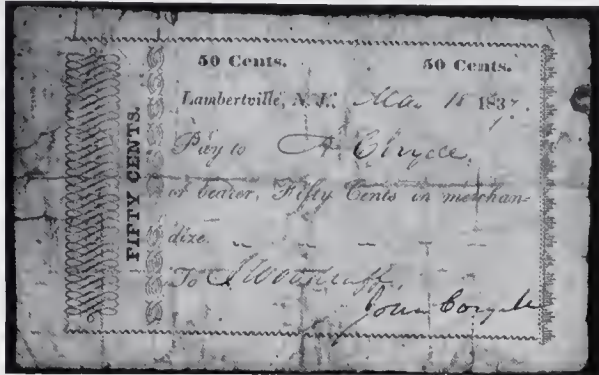 50 Cents. 50 Cents.
FIFTY CENTS.
Lambertville, N. J. Mar 15 1837.
Pay to A. Cinyde,
or bearer, Fifty Cents in merchan-
dize.
To Woodruff,
John Coryell